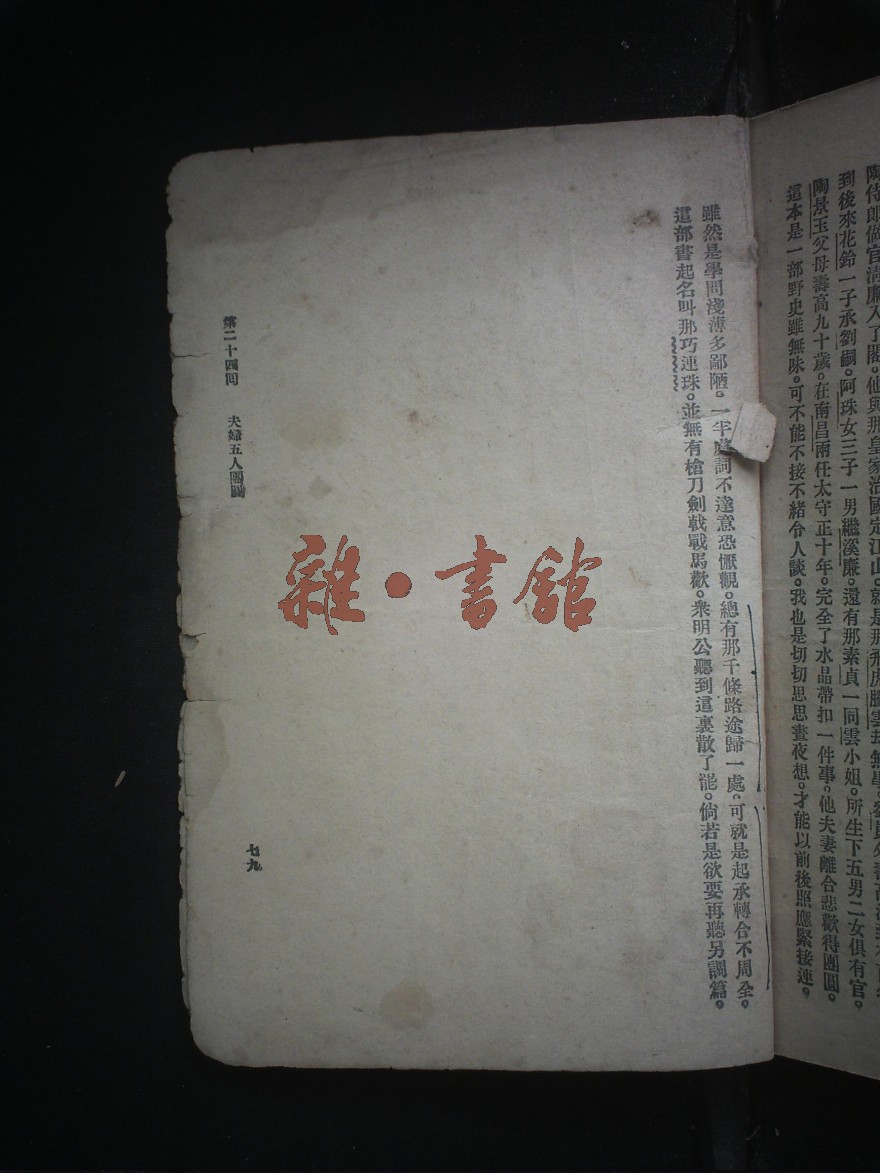 陶侍郎做官清廉入了閣。他與那皇家治國定江山。就是那飛虎騰雲
到後來花鈴一子承劉嗣。阿珠女三子一男繼溪廉。還有那素貞一同雲小姐。所生下五男二女俱有官。
陶景玉父母壽高九十歲。在南昌兩任太守正十年。完全了水晶帶扣一件事。他夫妻離合悲歡得團圓。
這本是一部野史雖無味。可不能不接不緒令人談。我也是切切思思晝夜想。才能以前後照應緊接連。
雖然是學問淺薄多鄙陋。一半處詞不達意恐厭觀。總有那千條路途歸一處。可就是起承轉合不周全。
這部書起名叫那巧連珠。並無有槍刀劍戟戰馬歡。衆明公聽到這裏散了罷。倘若是欲要再聽另調篇。
第二十四回 夫婦五人團圓
七九
雜·書館